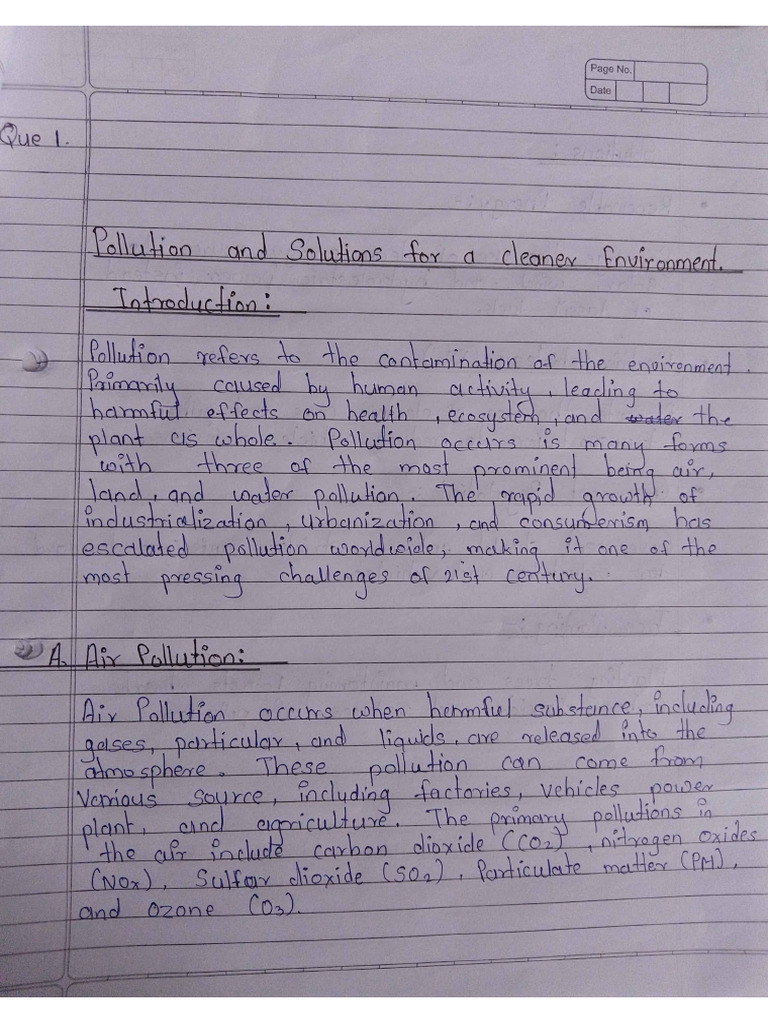 Page No.
Date
Que 1.
Pollution and Solutions for a cleaner Environment.
Introduction:
Pollution refers to the contamination of the environment.
Primarily caused by human activity, leading to
harmful effects on health, ecosystem, and water the
plant as whole. Pollution occurs is many forms
with three of the most prominent being air,
land, and water pollution. The rapid growth of
industrialization, urbanization, and consumerism has
escalated pollution worldwide, making it one of the
most pressing challenges of 21st century.
A. Air Pollution:
Air Pollution occurs when harmful substance, including
gases, particular, and liquids, are released into the
atmosphere. These pollution can come from
Various source, including factories, vehicles power
plant, and agriculture. The primary pollutions in
the air include carbon dioxide (CO2), nitrogen oxides
(NOx), Sulfar dioxide (SO2), Particulate matter (PM),
and ozone (O3).